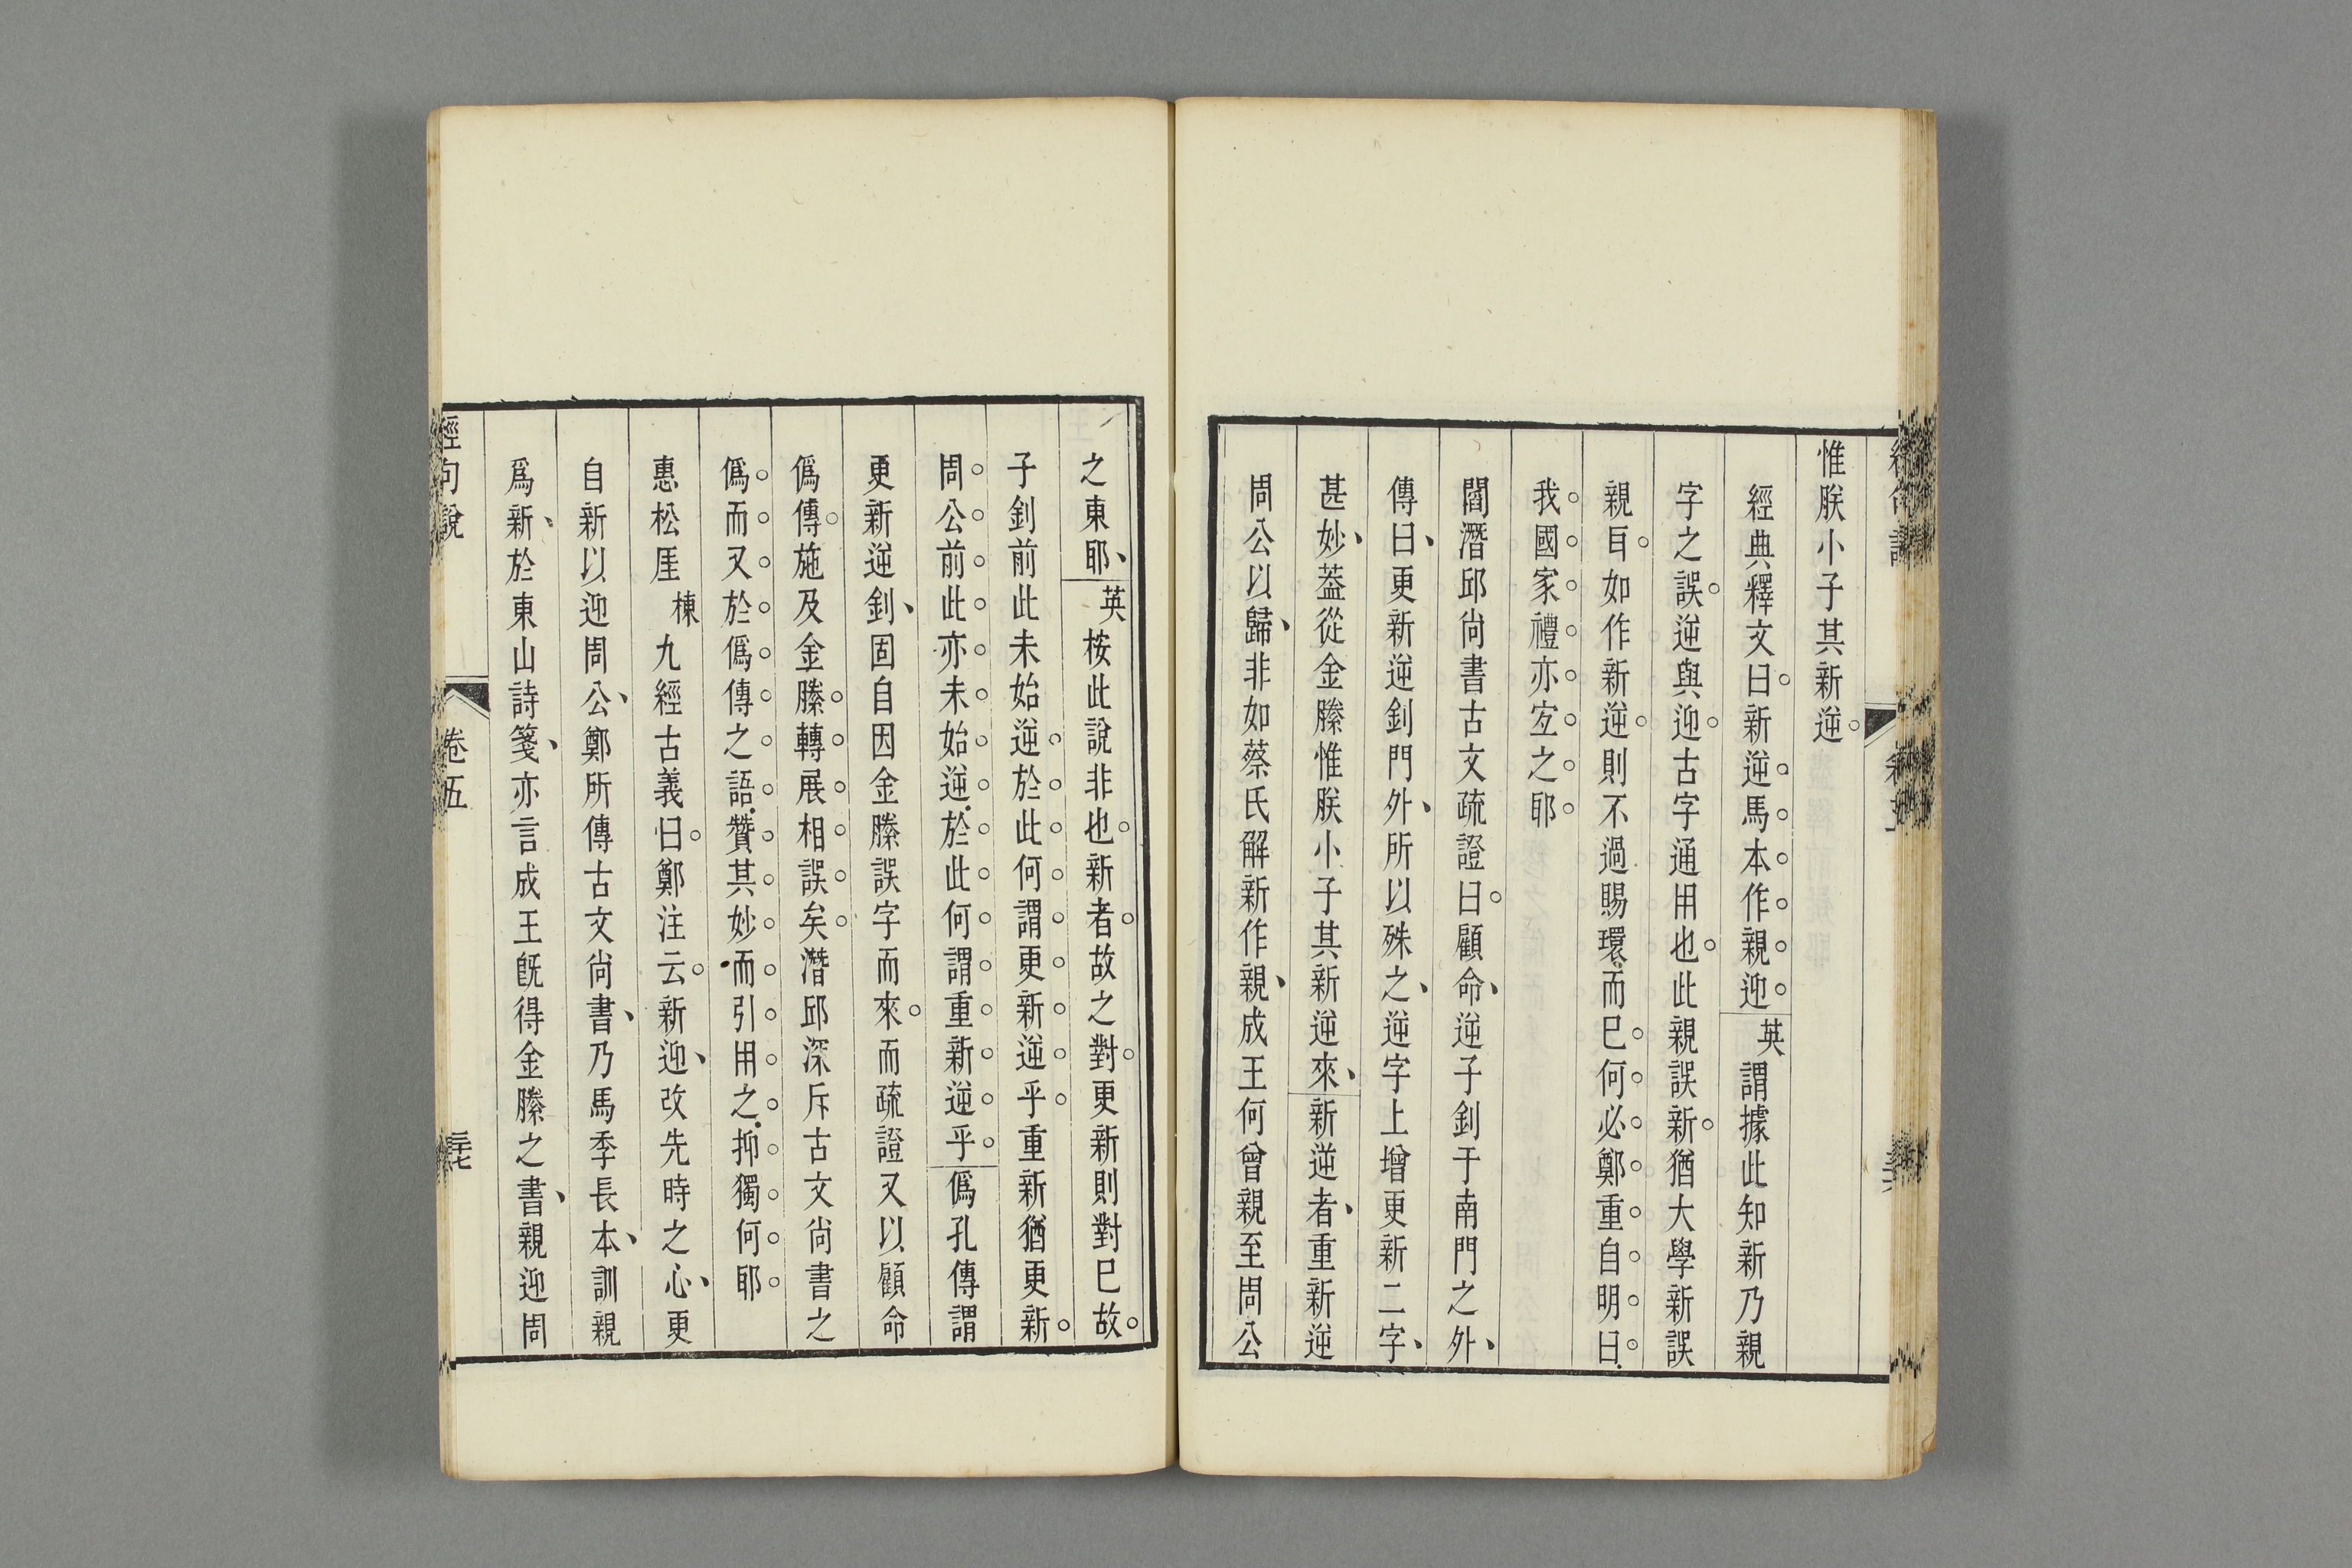 惟朕小子其新逆
經典釋文曰新逆馬本作親迎英謂據此知新乃親
字之誤逆與迎古字通用也此親誤新猶大學新誤
親耳如作新逆則不過賜環而已何必鄭重自明曰
我國家禮亦宐之耶
閻潛邱尙書古文疏證曰顧命逆子釗于南門之外
傳曰更新逆釗門外所以殊之逆字上增更新二字
甚妙葢從金縢惟朕小子其新逆來新逆者重新逆
周公以歸非如蔡氏解新作親成王何曾親至周公
之東耶英按此說非也新者故之對更新則對巳故
子釗前此未始逆於此何謂更新逆乎重新猶更新
周公前此亦未始逆於此何謂重新逆乎僞孔傳謂
更新逆釗固自因金縢誤字而來而疏證又以顧命
僞傳施及金縢轉展相誤矣潛邱深斥古文尙書之
僞而又於僞傳之語贊其妙而引用之抑獨何耶
惠松厓棟九經古義曰鄭注云新迎改先時之心更
自新以迎周公鄭所傳古文尙書乃馬季長本訓親
爲新於東山詩箋亦言成王旣得金縢之書親迎周
經句說
卷五
三七